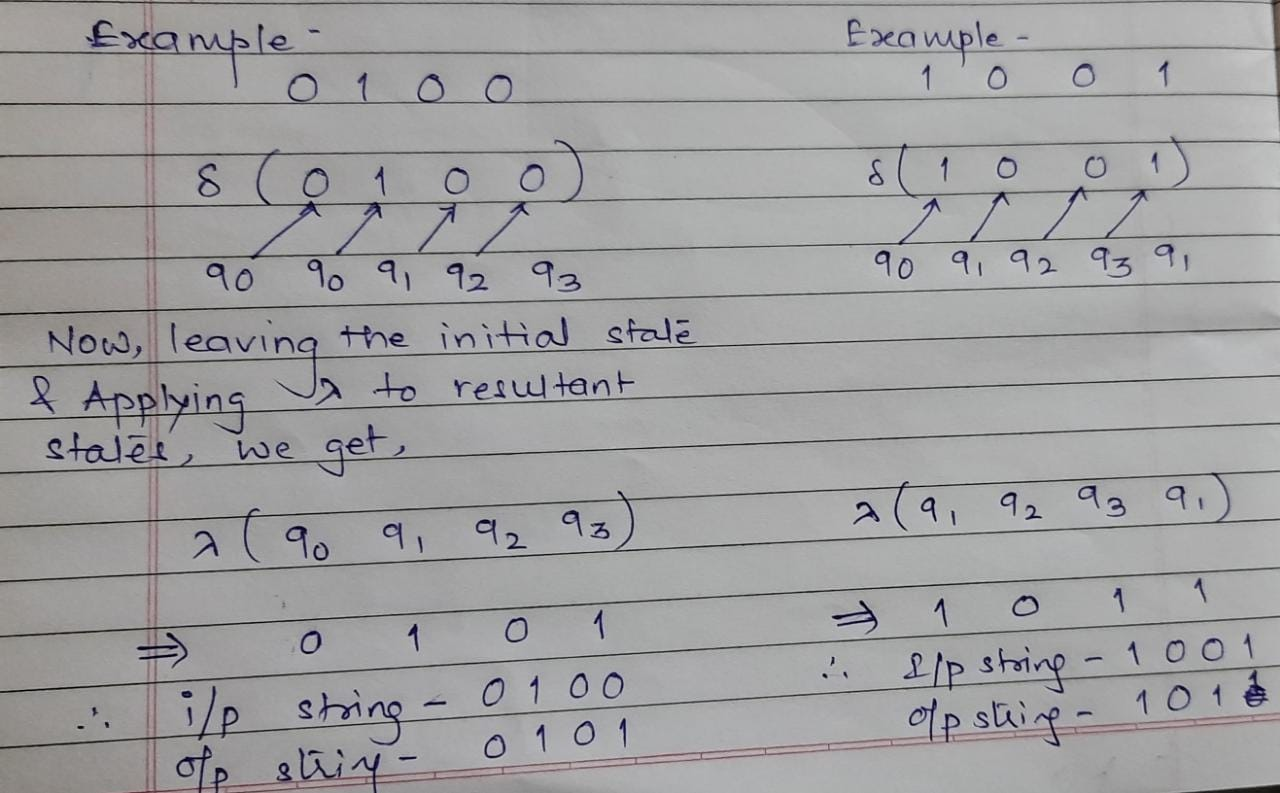 Example -
0 1 0 0
δ ( 0 1 0 0 )
q0 q0 q1 q2 q3
Now, leaving the initial state
& Applying λ to resultant
states, we get,
λ ( q0 q1 q2 q3 )
⇒ 0 1 0 1
∴ i/p string - 0 1 0 0
o/p string - 0 1 0 1
Example -
1 0 0 1
δ ( 1 0 0 1 )
q0 q1 q2 q3 q1
λ ( q1 q2 q3 q1 )
⇒ 1 0 1 1
∴ I/p string - 1 0 0 1
o/p string - 1 0 1 1